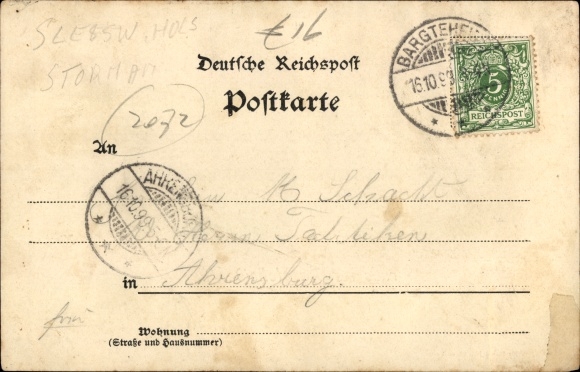 SLESSW. HOLS
STORMAN
£16
Deutsche Reichspost
Postkarte
2072
BARGTEHEI
16.10.99
5
REICHSPOST
An
AHRENS
16.10.99
M Schacht
in Ahrensburg.
Wohnung
(Straße und Hausnummer)